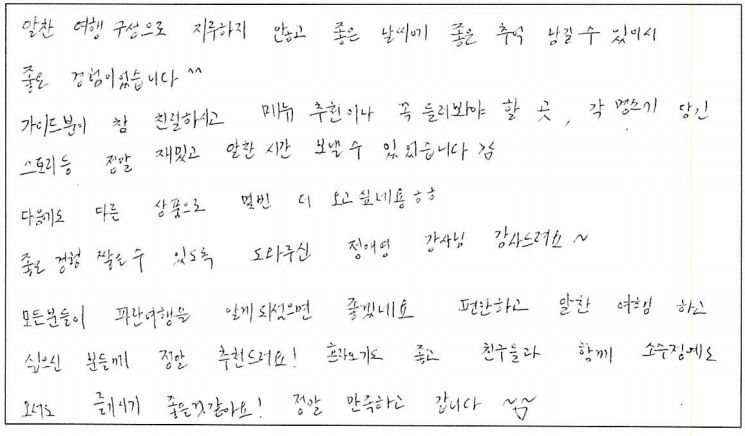 알찬 여행 구성으로 지루하지 않고 좋은 날씨에 좋은 추억 남길 수 있어서
좋은 경험이었습니다 ^^
가이드분이 참 친절하시고 메뉴 추천이나 꼭 들러봐야 할 곳, 각 명소가 담긴
스토리 등 정말 재밌고 알찬 시간 보낼 수 있었습니다
다음에도 다른 상품으로 몇번 더 오고 싶네용 ㅎㅎ
좋은 경험 쌓을 수 있도록 도와주신 정애영 강사님 감사드려요 ~
모든분들이 파란여행을 알게 되셨으면 좋겠네요 편안하고 알찬 여행 하고
싶으신 분들께 정말 추천드려요! 혼자오기도 좋고 친구들과 함께 소수정예로
오셔도 즐기시기 좋을것같아요! 정말 만족하고 갑니다 ~^^~